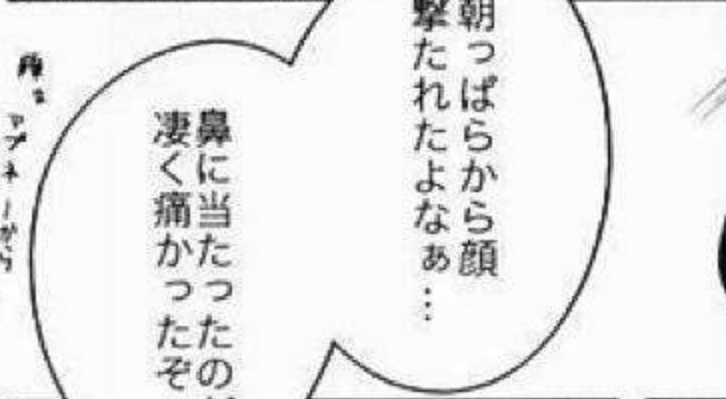 朝っぱらから顔
撃たれたよなぁ…
鼻に当たったのが
凄く痛かったぞ
アブネーから